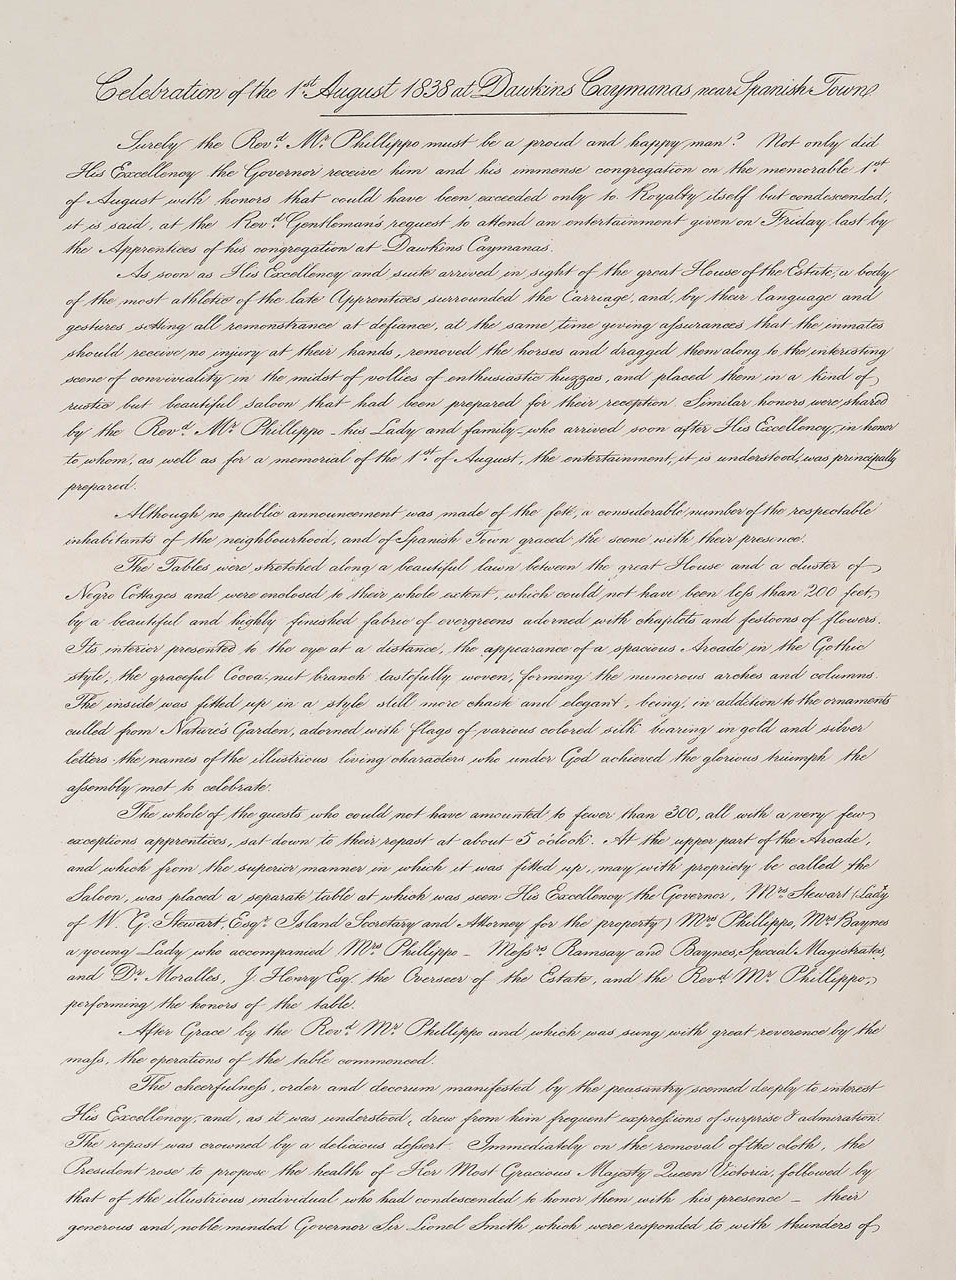 Celebration of the 1st August 1838 at Dawkins Caymanas near Spanish Town
Surely the Revd. Mr. Phillippo must be a proud and happy man? Not only did
His Excellency the Governor receive him and his immense congregation on the memorable 1st
of August with honors that could have been exceeded only to Royalty itself but condescended,
it is said, at the Revd. Gentleman's request to attend an entertainment given on Friday last by
the Apprentices of his congregation at Dawkins Caymanas.
As soon as His Excellency and suite arrived in sight of the great House of the Estate, a body
of the most athletic of the late Apprentices surrounded the Carriage, and, by their language and
gestures setting all remonstrance at defiance, at the same time giving aſsurances that the inmates
should receive no injury at their hands, removed the horses and dragged them along to the interesting
scene of conviviality in the midst of vollies of enthusiastic huzzas, and placed them in a kind of
rustic but beautiful saloon that had been prepared for their reception. Similar honors were shared
by the Revd. Mr. Phillippo - his Lady and family - who arrived soon after His Excellency, in honor
to whom, as well as for a memorial of the 1st of August, the entertainment, it is understood, was principally
prepared.
Although no public announcement was made of the feté, a considerable number of the respectable
inhabitants of the neighbourhood, and of Spanish Town graced the scene with their presence.
The Tables were stretched along a beautiful lawn between the great House and a cluster of
Negro Cottages and were enclosed to their whole extent, which could not have been leſs than 200 feet,
by a beautiful and highly finished fabric of evergreens adorned with chaplets and festoons of flowers.
Its interior presented to the eye at a distance, the appearance of a spacious Arcade in the Gothic
style, the graceful Cocoa-nut branch tastefully woven, forming the numerous arches and columns.
The inside was fitted up in a style still more chaste and elegant, being, in addition to the ornaments
culled from Nature's Garden, adorned with flags of various colored silk bearing in gold and silver
letters the names of the illustrious living characters who under God achieved the glorious triumph the
aſsembly met to celebrate.
The whole of the guests who could not have amounted to fewer than 300, all with a very few
exceptions apprentices, sat down to their repast at about 5 o'clock. At the upper part of the Arcade,
and which from the superior manner in which it was fitted up, may with propriety be called the
Saloon, was placed a separate table at which was seen His Excellency the Governor, Mrs. Stewart (Lady
of W. G. Stewart, Esqr. Island Secretary and Attorney for the property) Mrs. Phillippo, Mrs. Baynes
a young Lady who accompanied Mrs. Phillippo - Meſsrs. Ramsay and Baynes, Special Magistrates,
and Dr. Moralles, J. Henry Esq. the Overseer of the Estate, and the Revd. Mr. Phillippo,
performing the honors of the table.
After Grace by the Revd. Mr. Phillippo and which was sung with great reverence by the
maſs, the operations of the table commenced.
The cheerfulneſs, order and decorum manifested by the peasantry seemed deeply to interest
His Excellency, and, as it was understood, drew from him frequent expreſsions of surprise & admiration.
The repast was crowned by a delicious deſsert. Immediately on the removal of the cloth, the
President rose to propose the health of Her Most Gracious Majesty Queen Victoria, followed by
that of the illustrious individual who had condescended to honor them with his presence - their
generous and noble minded Governor Sir Lionel Smith which were responded to with thunders of